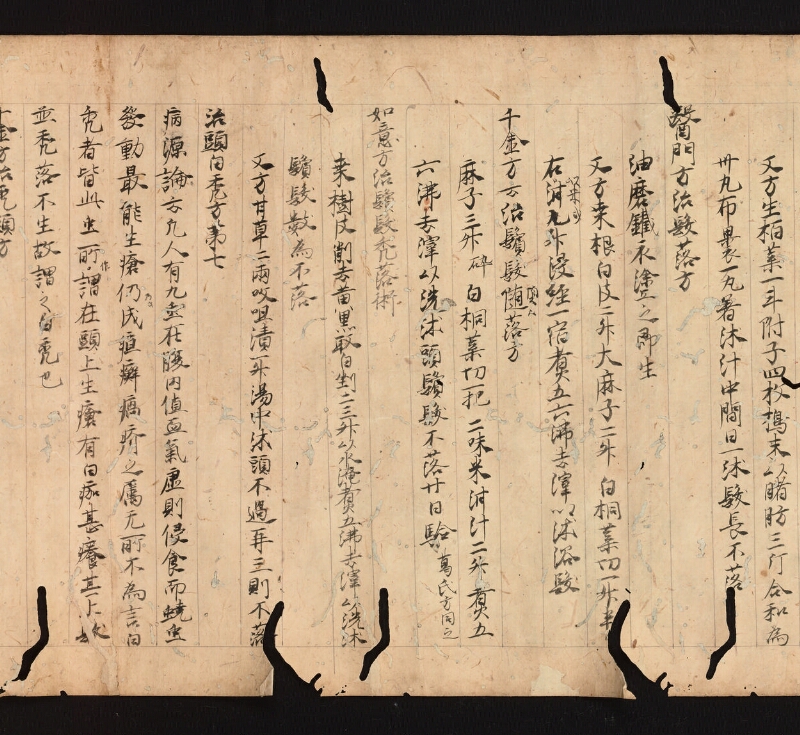 又方生柏葉一斤附子四枚搗末以賭肪三斤合和為
卅丸布裹一丸著沐汁中間日一沐髮長不落
醫門方治髮落方
油磨鐵衣塗之即生
又方桒根白皮二升大麻子二升白桐葉切一升半
右泔九升浸經一宿煑五六沸去滓以沐浴髮
千金方云治鬢髮随落方
麻子三升碎白桐葉切一把二味米泔汁二升煑五
六沸去滓以洗沐頭鬢髮不落廿日驗 葛氏方同之
如意方治鬢髮禿落術
桒樹皮削去黃黑取白剉二三升以水淹煑五沸去滓以洗沐
鬢髮數為不落
又方甘草二兩㕮咀漬一升湯中沐頭不過再三則不落
治頭白禿方第七
病源論云凡人有九虫在腹内值血氣虛則侵食而蟯虫
發動最能生瘡仍成疽癬瘑疥之屬无所不為言白
禿者皆此虫所作謂在頭上生瘡有白痂甚癢其上髮
並禿落不生故謂之白禿也
千金方治禿頭方